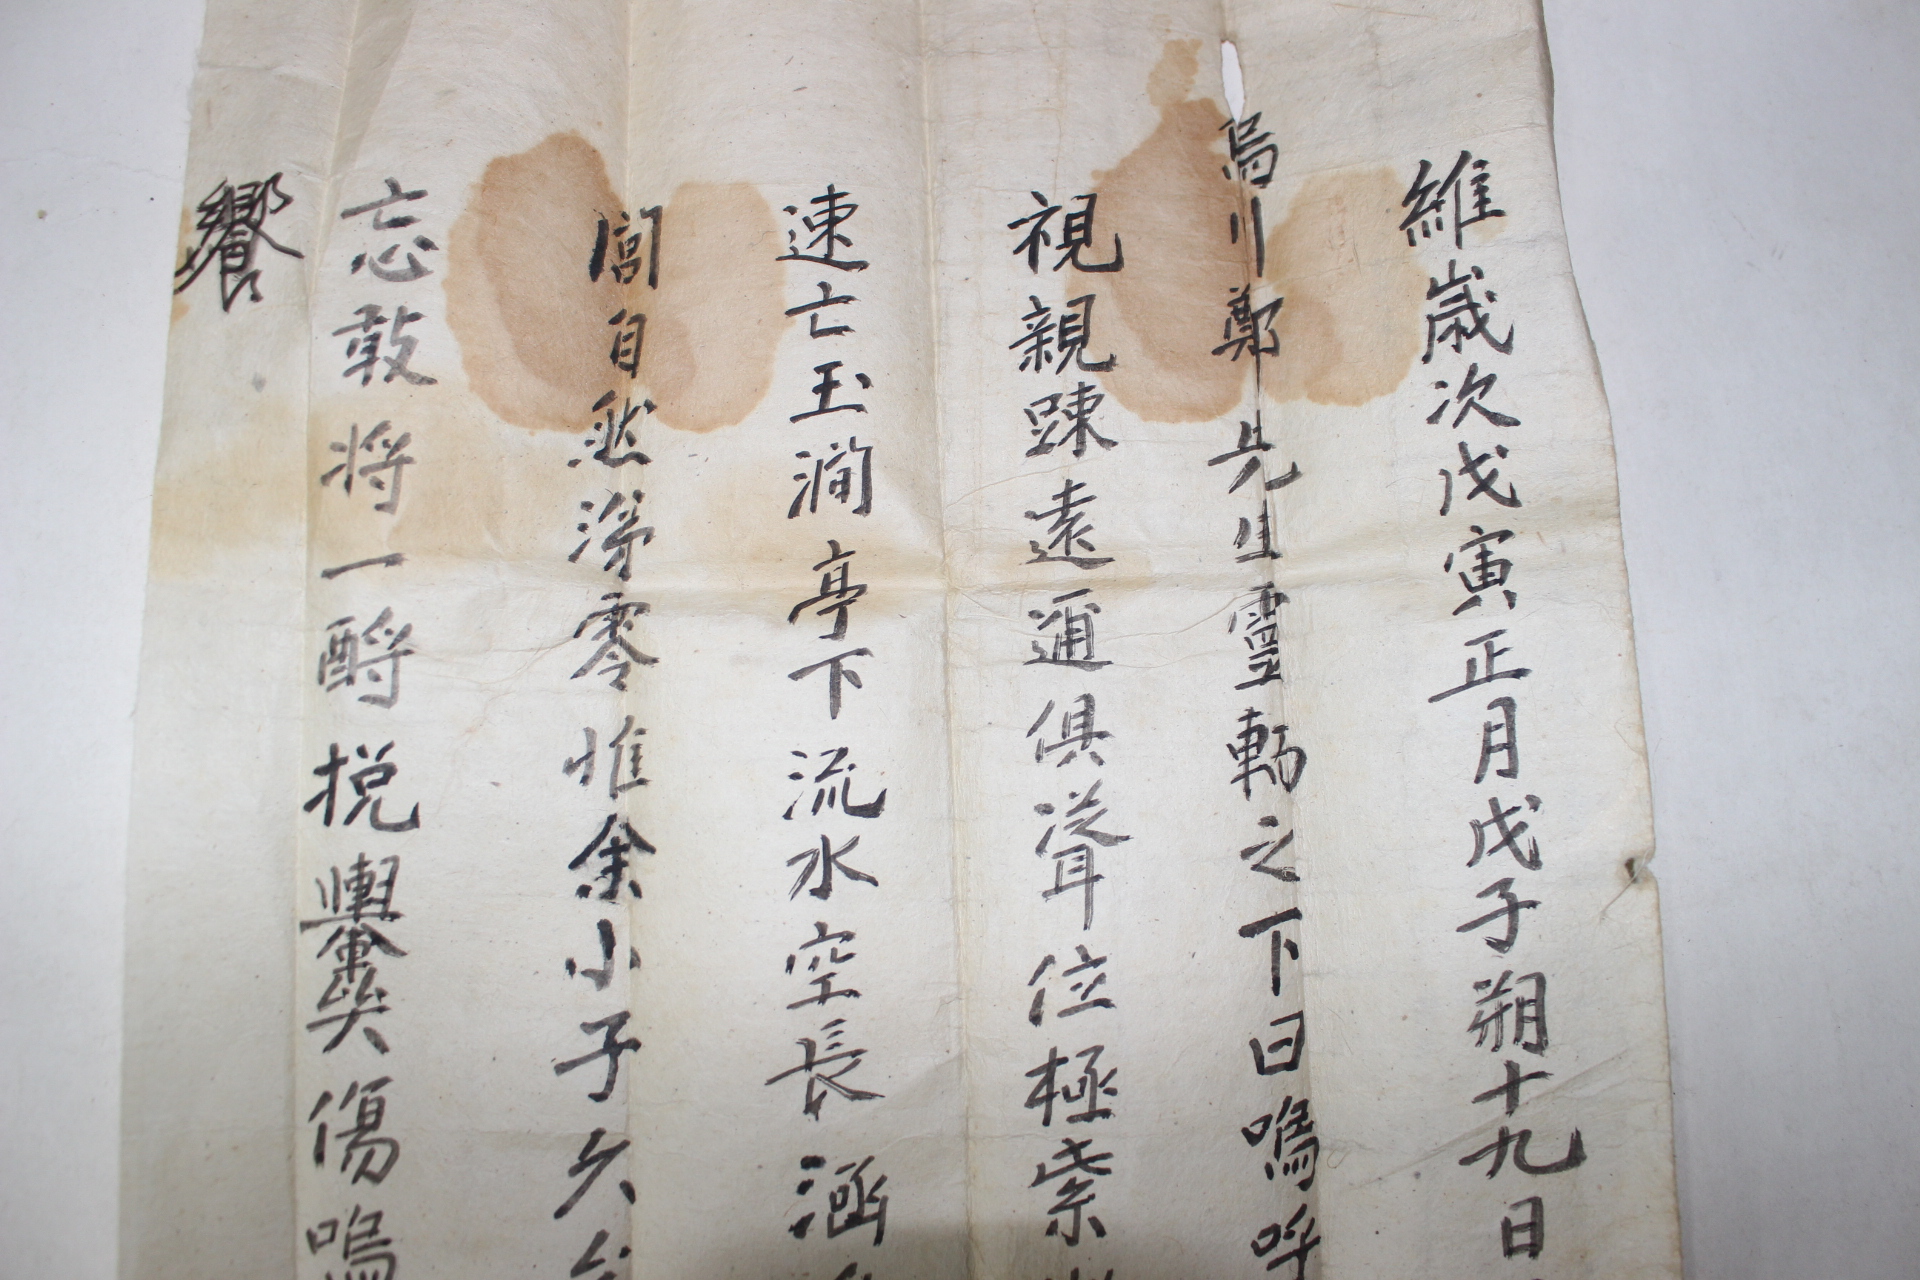 維歲次戊寅正月戊子朔十九日
烏川鄭先生靈輀之下曰嗚呼
視親踈遠邇俱聳位極紫
速亡玉澗亭下流水空長涵
閭自然涕零惟余小子久
忘敢將一酹挽轝奠傷嗚
饗